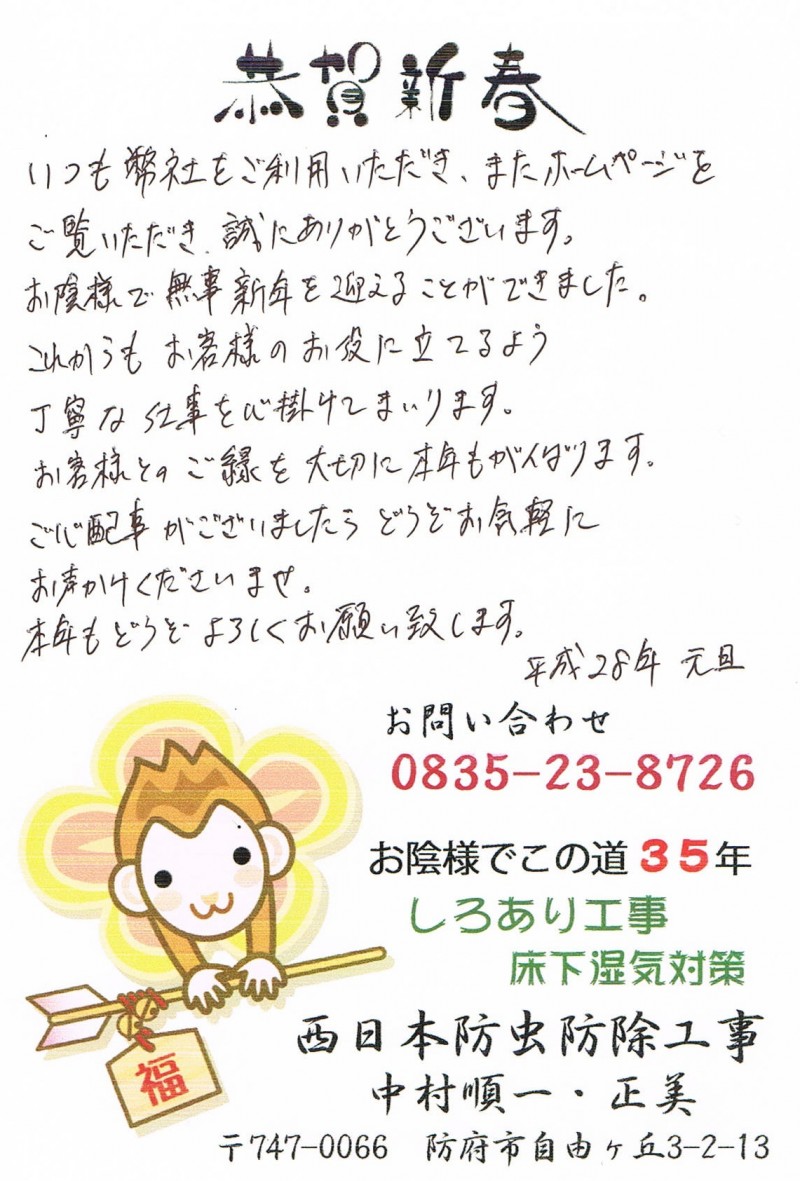 恭賀新春
いつも弊社をご利用いただき、またホームページを
ご覧いただき、誠にありがとうございます。
お陰様で無事新年を迎えることができました。
これからもお客様のお役に立てるよう
丁寧な仕事を心掛けてまいります。
お客様とのご縁を大切に本年もがんばります。
ご心配事がございましたらどうぞお気軽に
お声かけくださいませ。
本年もどうぞよろしくお願い致します。
平成28年 元旦
お問い合わせ
0835-23-8726
お陰様でこの道35年
しろあり工事
床下湿気対策
西日本防虫防除工事
中村順一・正美
福
〒747-0066 防府市自由ヶ丘3-2-13